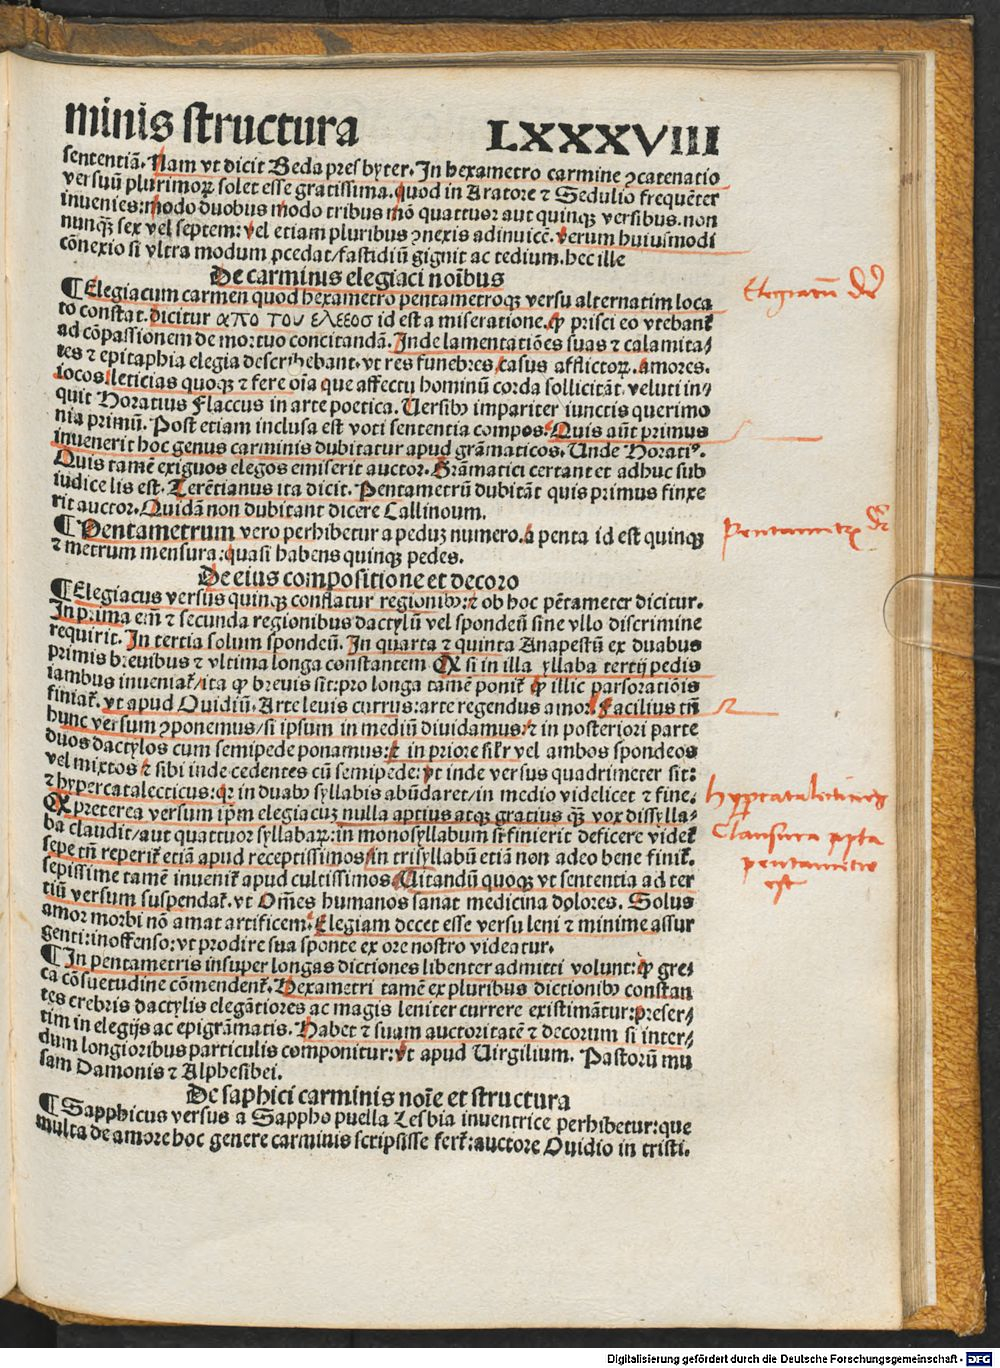 minis structura LXXXVIII
sententiã. Nam vt dicit Beda presbyter. In hexametro carmine ꝯcatenatio
versuũ plurimoꝝ solet esse gratissima. quod in Aratore ⁊ Sedulio frequẽter
inuenies: modo duobus modo tribus mõ quattuor aut quinqꝫ versibus. non
nunqꝫ sex vel septem: vel etiam pluribus ꝯnexis adinuicẽ. verum huiusmodi
cõnexio si vltra modum ꝓcedat/ fastidiũ gignit ac tedium. hec ille
De carminis elegiaci noĩbus
¶ Elegiacum carmen quod hexametro pentametroqꝫ versu alternatim loca
to constat. dicitur απο του ελεεοσ id est a miseratione. ꝙ prisci eo vtebant᷑
ad cõpassionem de mortuo concitandã. Inde lamentatiões suas ⁊ calamita/
tes ⁊ epitaphia elegia describebant. vt res funebres/ casus afflictoꝝ. amores.
iocos/ leticias quoqꝫ ⁊ fere oĩa que affectu hominũ corda sollicitãt. veluti in/
quit Horatius Flaccus in arte poetica. Uersibꝰ impariter iunctis querimo
nia primũ. Post etiam inclusa est voti sententia compos. Quis aũt primus
inuenerit hoc genus carminis dubitatur apud grãmaticos. Unde Horatiꝰ.
Quis tamẽ exiguos elegos emiserit auctor. Grãmatici certant et adhuc sub
iudice lis est. Terẽtianus ita dicit. Pentametrũ dubitãt quis primus finxe
rit auctor. Quidã non dubitant dicere Callinoum.
¶ Pentametrum vero perhibetur a peduꝫ numero. a penta id est quinqꝫ
⁊ metrum mensura: quasi habens quinqꝫ pedes.
De eius compositione et decoro
¶ Elegiacus versus quinqꝫ conflatur regionibꝰ: ⁊ ob hoc pẽtameter dicitur.
In prima em̃ ⁊ secunda regionibus dactylũ vel spondeũ sine vllo discrimine
requirit. In tertia solum spondeũ. In quarta ⁊ quinta Anapestũ ex duabus
primis breuibus ⁊ vltima longa constantem Qꝫ si in illa syllaba tertij pedis
iambus inueniat᷑/ ita ꝙ breuis sit: pro longa tamẽ ponit᷑ ꝙ illic pars oratiõis
finiat᷑. vt apud Ouidiũ. Arte leuis currus: arte regendus amor. Facilius tñ
hunc versum ꝯponemus/ si ipsum in mediũ diuidamus: ⁊ in posteriori parte
duos dactylos cum semipede ponamus: ⁊ in priore sil̃r vel ambos spondeos
vel mixtos ⁊ sibi inde cedentes cũ semipede: vt inde versus quadrimeter sit:
⁊ hypercatalecticus: qꝛ in duabꝰ syllabis abũdaret/ in medio videlicet ⁊ fine.
Qꝫ preterea versum ip̃m elegiacuꝫ nulla aptius atqꝫ gratius qꝫ vox dissylla-
ba claudit/ aut quattuor syllabaꝝ: in monosyllabum si finierit deficere videt᷑
sepe tñ reperit᷑ etiã apud receptissimos/ in trisyllabũ etiã non adeo bene finit᷑.
sepissime tamẽ inuenit᷑ apud cultissimos. Uitandũ quoqꝫ vt sententia ad ter
tiũ versum suspendat᷑. vt Om̃es humanos sanat medicina dolores. Solus
amor morbi nõ amat artificem. Elegiam decet esse versu leni ⁊ minime assur
genti: inoffenso: vt prodire sua sponte ex ore nostro videatur.
¶ In pentametris insuper longas dictiones libenter admitti volunt: ꝙ gre/
ca cõsuetudine cõmendent᷑. Hexametri tamẽ ex pluribus dictionibꝰ constan
tes crebris dactylis elegãtiores ac magis leniter currere existimãtur: preser/
tim in elegijs ac epigrãmatis. Habet ⁊ suam auctoritatẽ ⁊ decorum si inter/
dum longioribus particulis componitur: vt apud Uirgilium. Pastorũ mu
sam Damonis ⁊ Alphesibei.
De saphici carminis noĩe et structura
¶ Sapphicus versus a Sappho puella Lesbia inuentrice perhibetur: que
multa de amore hoc genere carminis scripsisse fert᷑: auctore Ouidio in tristi.
Elegiacũ Dr̃
Pentametrꝫ dr̃
hypercatalecticus
Clausura apta
pentametro
est
Digitalisierung gefördert durch die Deutsche Forschungsgemeinschaft - DFG